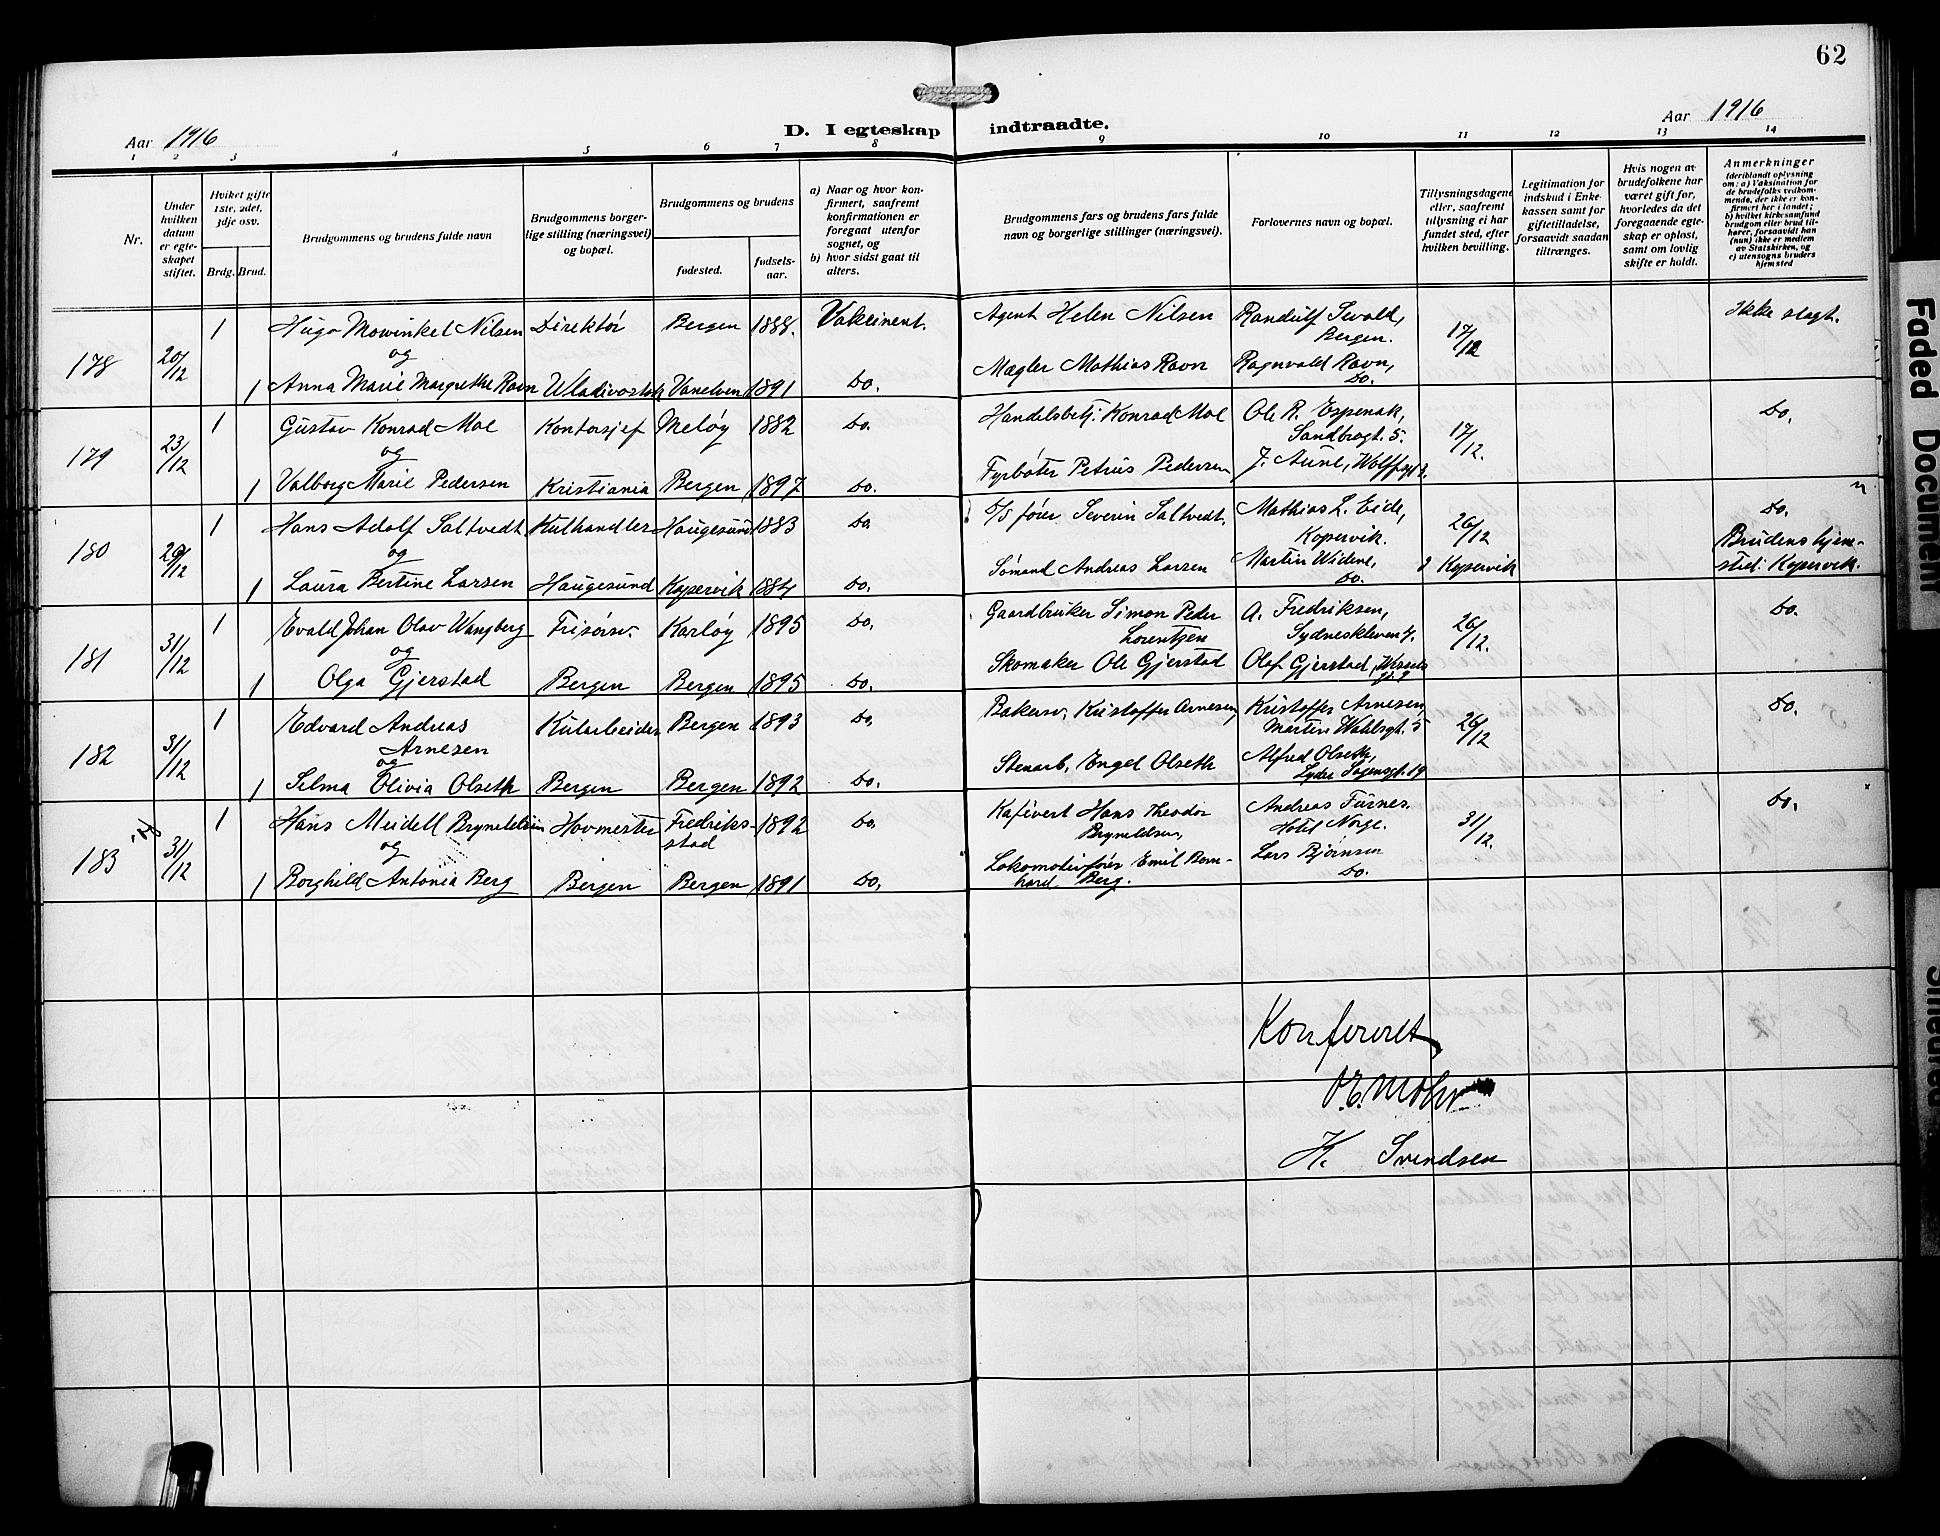 62
Aar 1916
D. I egteskap indtraadte.
Aar 1916
1 2 3 4 5 6 7 8 9 10 11 12 13 14
Nr.
Under hvilken datum er egteskapet stiftet.
Hvilket gifte 1ste, 2det, 3dje osv.
Brdg. Brud.
Brudgommens og brudens fulde navn
Brudgommens borgerlige stilling (næringsvei) og bopæl.
Brudgommens og brudens
fødested.
fødselsaar.
a) Naar og hvor konfirmert, saafremt konfirmationen er foregaat utenfor sognet, og
b) hvor sidst gaat til alters.
Brudgommens fars og brudens fars fulde navn og borgerlige stillinger (næringsvei).
Forlovernes navn og bopæl.
Tillysningsdagene eller, saafremt tillysning ei har fundet sted, efter hvilken bevilling.
Legitimation for indskud i Enkekassen samt for giftetilladelse, forsaavidt saadan tiltrænges.
Hvis nogen av brudefolkene har været gift før, hvorledes da det foregaaende egteskap er opløst, samt om lovlig skifte er holdt.
Anmerkninger
(deriblandt oplysning om: a) Vaksination for de brudefolks vedkommende, der ikke er konfirmert her i landet; b) hvilket kirkesamfund brudgom eller brud tilhører, forsaavidt han (hun) ikke er medlem av Statskirken, og c) utensogns bruders hjemsted
178 20/12 1 Hugo Mowinkel Nilsen Direktör Bergen 1888. Vakcinert. Agent Helen Nilsen Randulf Sewald, Bergen. 17/12 Ikke slegt.
og
1 Anna Marie Margrethe Ravn Wladivostok Vanelven 1891 Do. Mægler Mathias Ravn Ragnvald Ravn, Do.
179 23/12 1 Gustav Konrad Moe Kontorsjef Meløy 1882 Do. Handelsbetj. Konrad Moe Ole R. Espenak, Sandbrogt. 5. 17/12. Do.
og
1 Valborg Marie Pedersen Kristiania Bergen 1897 Do. Fyrböter Petrus Pedersen J. Aune,
180 26/12 1 Hans Adolf Saltvedt Kulhandler Haugesund 1883 Do. D/S förer Severin Saltvedt. Mathias L. Eide, Kopervik. 26/12 Do.
og
1 Laura Bertine Larsen Haugesund Kopervik 1884 Do. Sömand Andreas Larsen Martin Widene, Do. i Kopervik Brudens hjemsted: Kopervik.
181 31/12 1 Evald Johan Olav Wangberg Frisörsv. Karlöy 1895 Do. Gaardbruker Simon Peder Lorentzen A. Fredriksen, Sydneskleven 4. 26/12. Do.
og
1 Olga Gjerstad Bergen Bergen 1895 Do. Skomaker Ole Gjerstad Olaf Gjerstad,
182 31/12 1 Edvard Andreas Arnesen Kularbeider Bergen 1893 Do. Bakersv. Kristoffer Arnesen, Kristoffer Arnesen, Martin Wahlsgt. 5 26/12 Do.
og
1 Selma Olivia Olseth Bergen Bergen 1892 Do. Stenarb. Engel Olseth Alfred Olseth, Lyder Sagensgt. 19
183 31/12 1 Hans Meidell Bryneldsen Hovmester Fredriksstad 1892 Do. Kafévert Hans Theodor Bryneldsen, Andreas Furnes. Hotel Norge. 31/12. Do.
og
1 Borghild Antonia Berg Bergen Bergen 1891 Do. Lokomotivförer Emil Bernhard Berg. Lars Björnsen Do.
Konfereret
O.E. Mohr
K. Svendsen
Faded Document